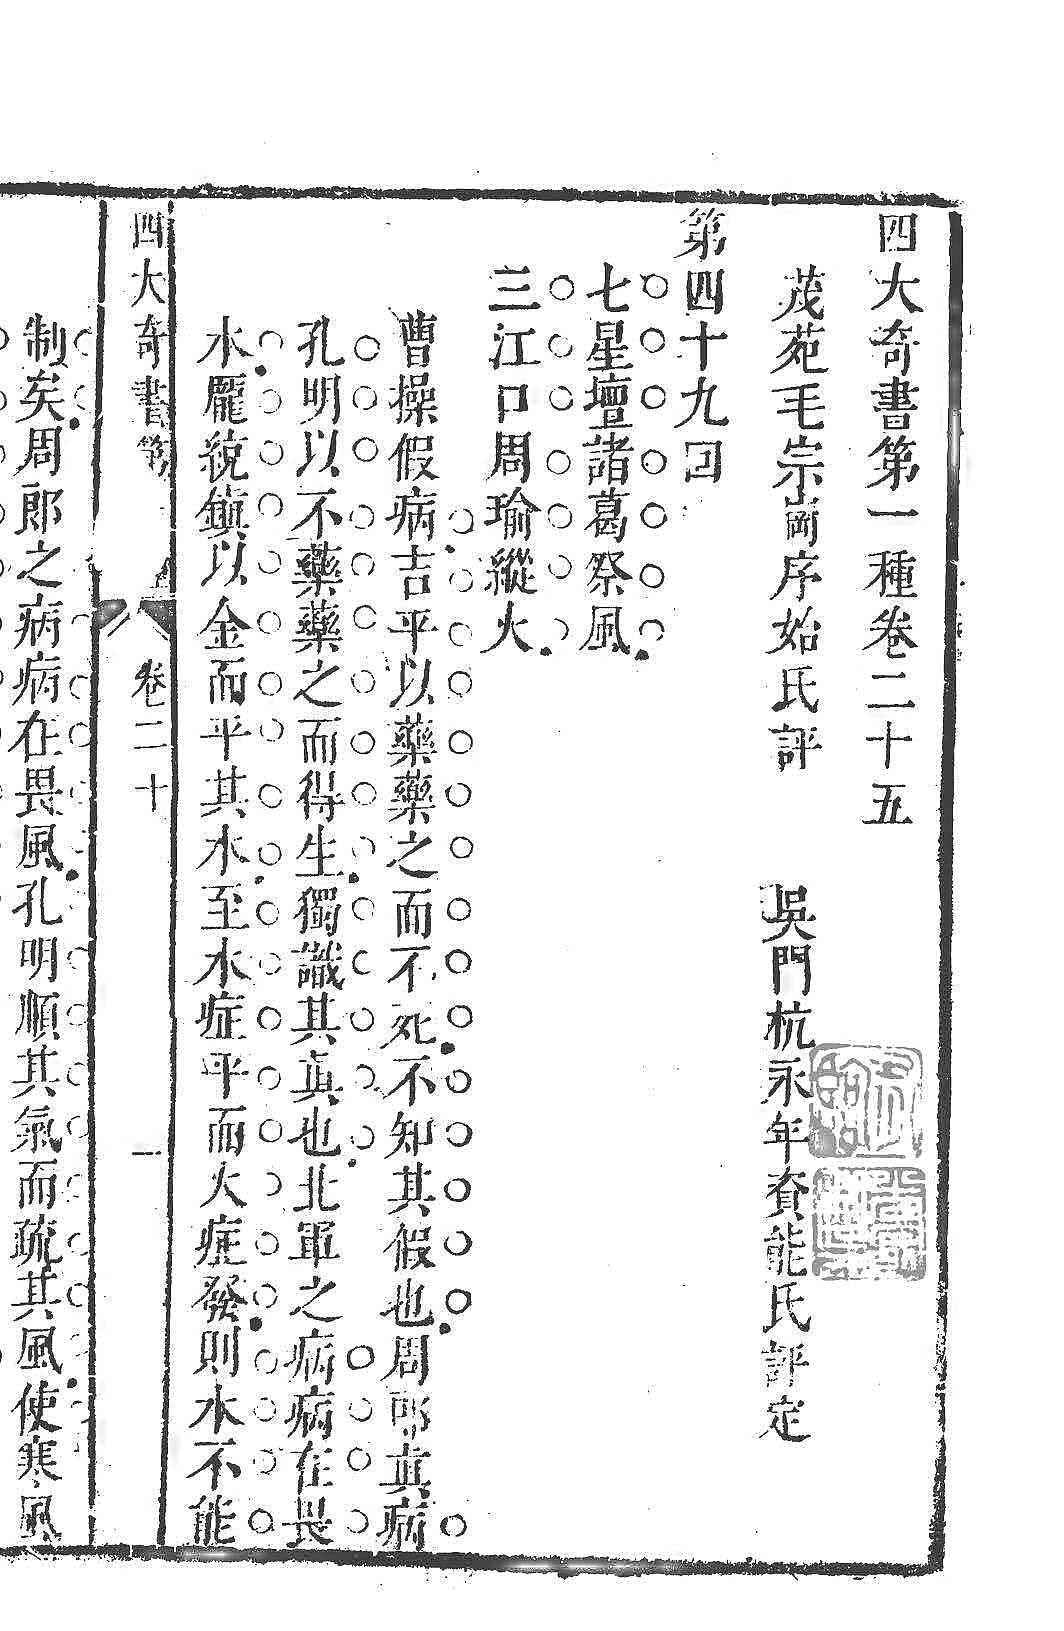 四大奇書第一種卷二十五
茂苑毛宗崗序始氏評　吳門杭永年資能氏評定
第四十九回
七星壇諸葛祭風
三江口周瑜縱火
曹操假病吉平以藥藥之而不死不知其假也周郎真病
孔明以不藥藥之而得生獨識其真也北軍之病病在畏
水龐統鎮以金而平其水至水症平而火症發則水不能
四大奇書第　卷二十　一
制矣周郎之病病在畏風孔明順其氣而疏其風使寒風